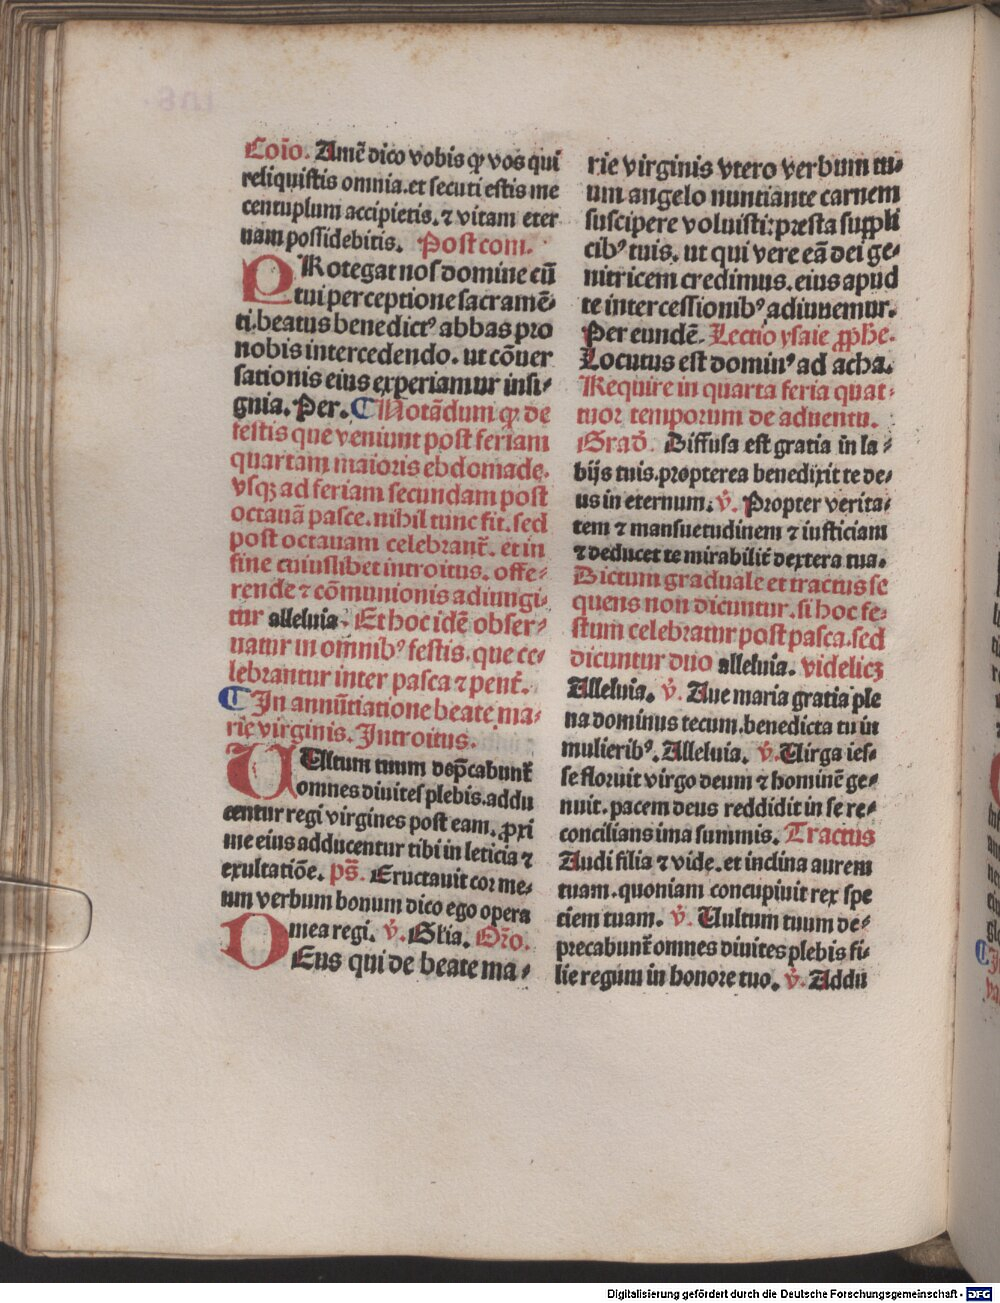 Coīo. Amē dico vobis ꝙ vos qui
reliquistis omnia.et secuti estis me
centuplum accipietis.⁊ vitam eter
nam possidebitis. Post com.
PRotegat nos domine cū
tui perceptione sacramē⸗
ti.beatus benedictꝰ abbas pro
nobis intercedendo. ut cōuer
sationis eius experiamur insi⸗
gnia. Per. ⸿ Notādum ꝙ de
festis que veniunt post feriam
quartam maioris ebdomade.
vsqꝫ ad feriam secundam post
octauā pasce.nihil tunc fit.sed
post octauam celebrant̄. et in
fine cuiuslibet introitus. offe⸗
rende ⁊ cōmunionis adiungi⸗
tur alleluia. Et hoc idē obser⸗
uatur in omnibꝰ festis.que ce⸗
lebrantur inter pasca ⁊ pent̄.
⸿ In annūtiatione beate ma⸗
rię virginis. Introitus.
VUltum tuum dep̄cabunt̄
omnes diuites plebis.addu
centur regi virgines post eam.ꝓxi
me eius adducentur tibi in leticia ⁊
exultatiōe. ps̄. Eructauit cor me⸗
um verbum bonum dico ego opera
mea regi. v̄. Glīa. Or̄o.
DEus qui de beate ma⸗
rie virginis vtero verbum tu⸗
um angelo nuntiante carnem
suscipere voluisti:pręsta suppli
cibꝰ tuis. ut qui vere eā dei ge⸗
nitricem credimus.eius apud
te intercessionibꝰ adiuuemur.
Per eundē. Lectio ysaie ꝓphe.
Locutus est dominꝰ ad acha.
Require in quarta feria quat⸗
tuor temporum de aduentu.
Grad̄. Diffusa est gratia in la⸗
bijs tuis.propterea benedixit te de⸗
us in eternum. v̄. Propter verita⸗
tem ⁊ mansuetudinem ⁊ iusticiam
⁊ deducet te mirabilit̄ dextera tua.
Dictum graduale et tractus se
quens non dicuntur.si hoc fe⸗
stum celebratur post pasca.sed
dicuntur duo alleluia. videlicꝫ
Alleluia. v̄. Aue maria gratia ple
na dominus tecum.benedicta tu in
mulieribꝰ. Alleluia. v̄. Uirga ies⸗
se floruit virgo deum ⁊ hominē ge⸗
nuit.pacem deus reddidit in se re⸗
concilians ima summis. Tractus
Audi filia ⁊ vide.et inclina aurem
tuam.quoniam concupiuit rex spe
ciem tuam. v̄. Uultum tuum de⸗
precabunt̄ omnes diuites plebis fi⸗
lie regum in honore tuo. v̄. Addu
Digitalisierung gefördert durch die Deutsche Forschungsgemeinschaft - DFG